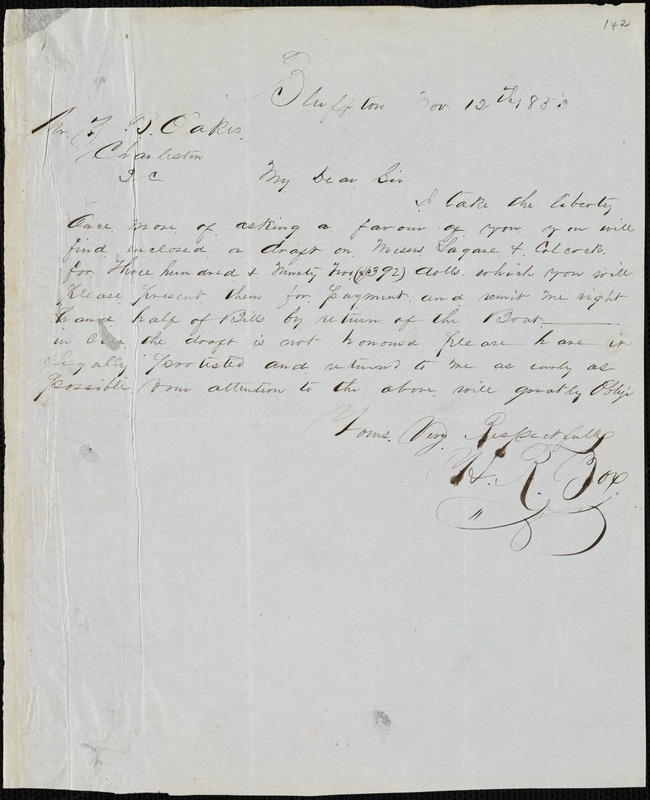 142
Bluffton Nov 12th 1853
Mr. Z B. Oakes.
Charleston
S C
My Dear Sir
I take the liberty
Once more of asking a favour of you you will
find inclosed a draft on Messrs Lagare & Colcock
for Three hundred & Ninety Two ($392) dolls. which you will
Please present them for payment and remit me right
hand half of Bills by return of the Boat
in Case the draft is not honourd please have it
Legally protested and returnd to me as early as
possible Your attention to the above will greatly Oblige
Yours Very Respectfully
H. R. Box